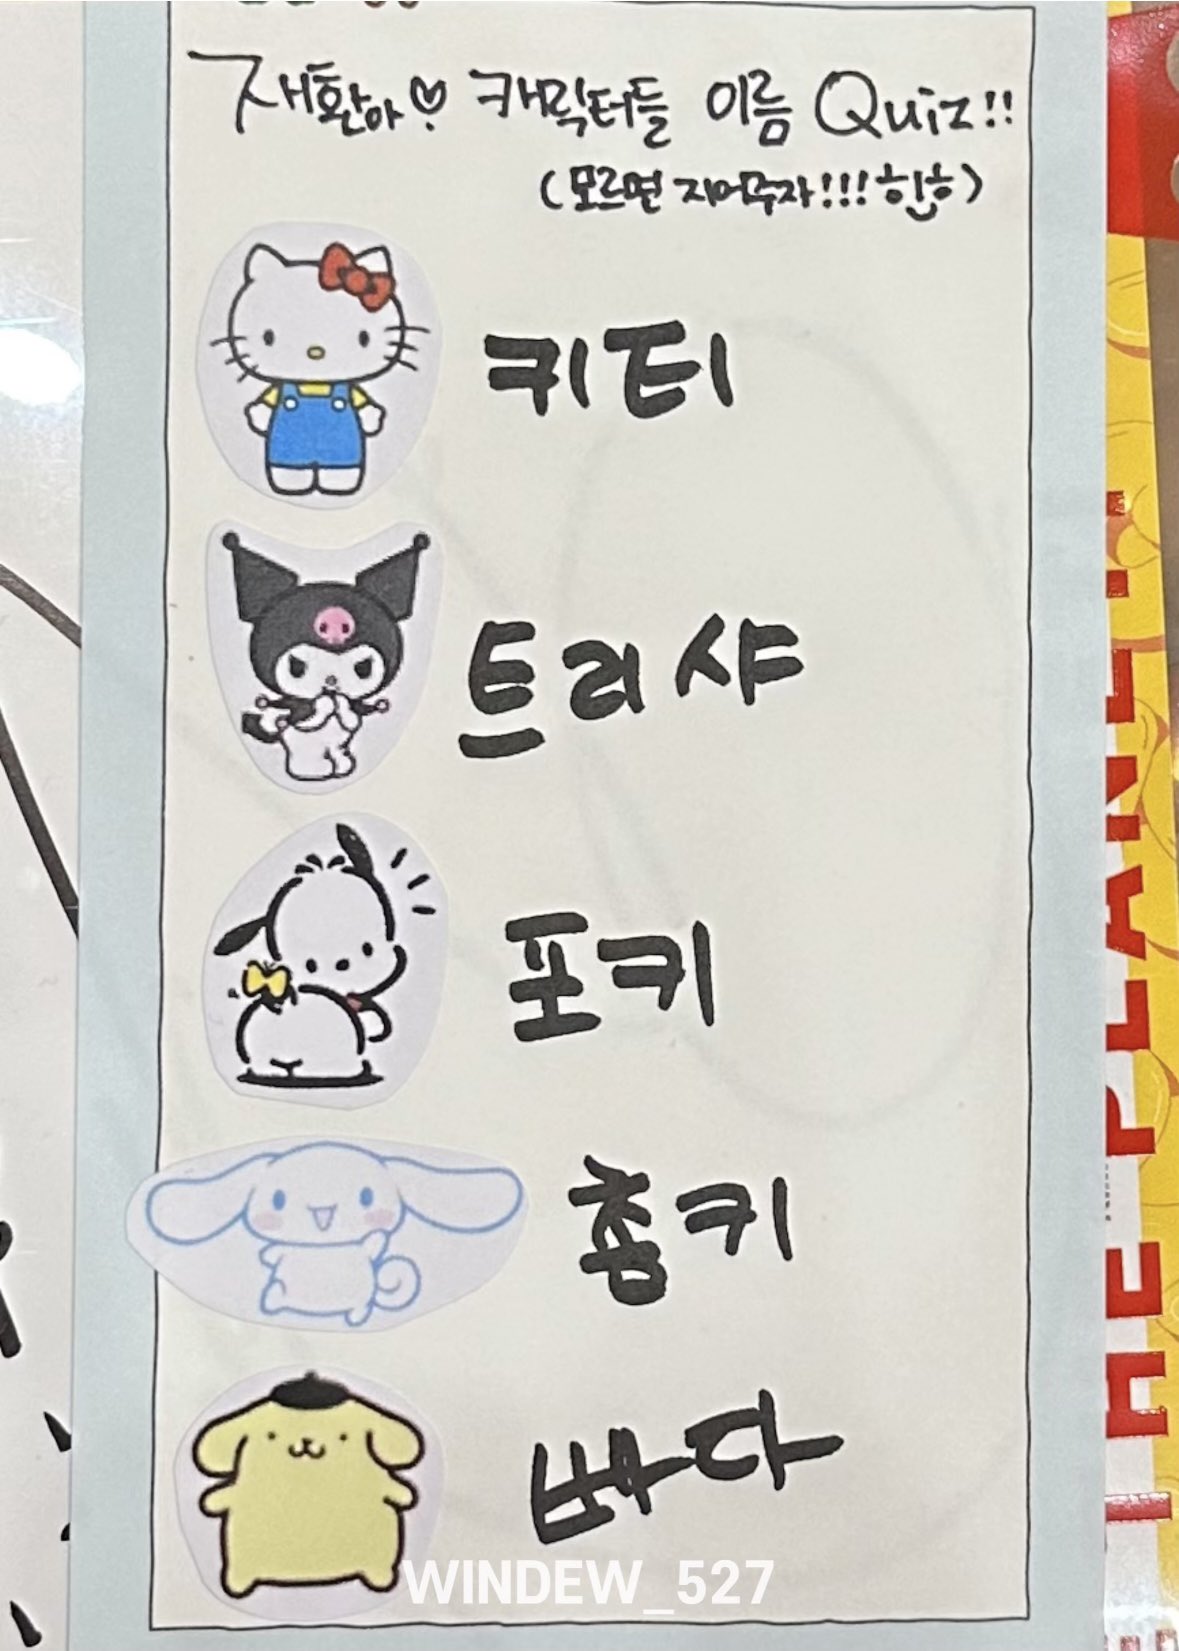 재환아♡ 캐릭터들 이름 Quiz!!
(모르면 지어주자!!! 히히)
키티
트리샤
포키
춈키
빠다
WINDEW_527
THE PLANET